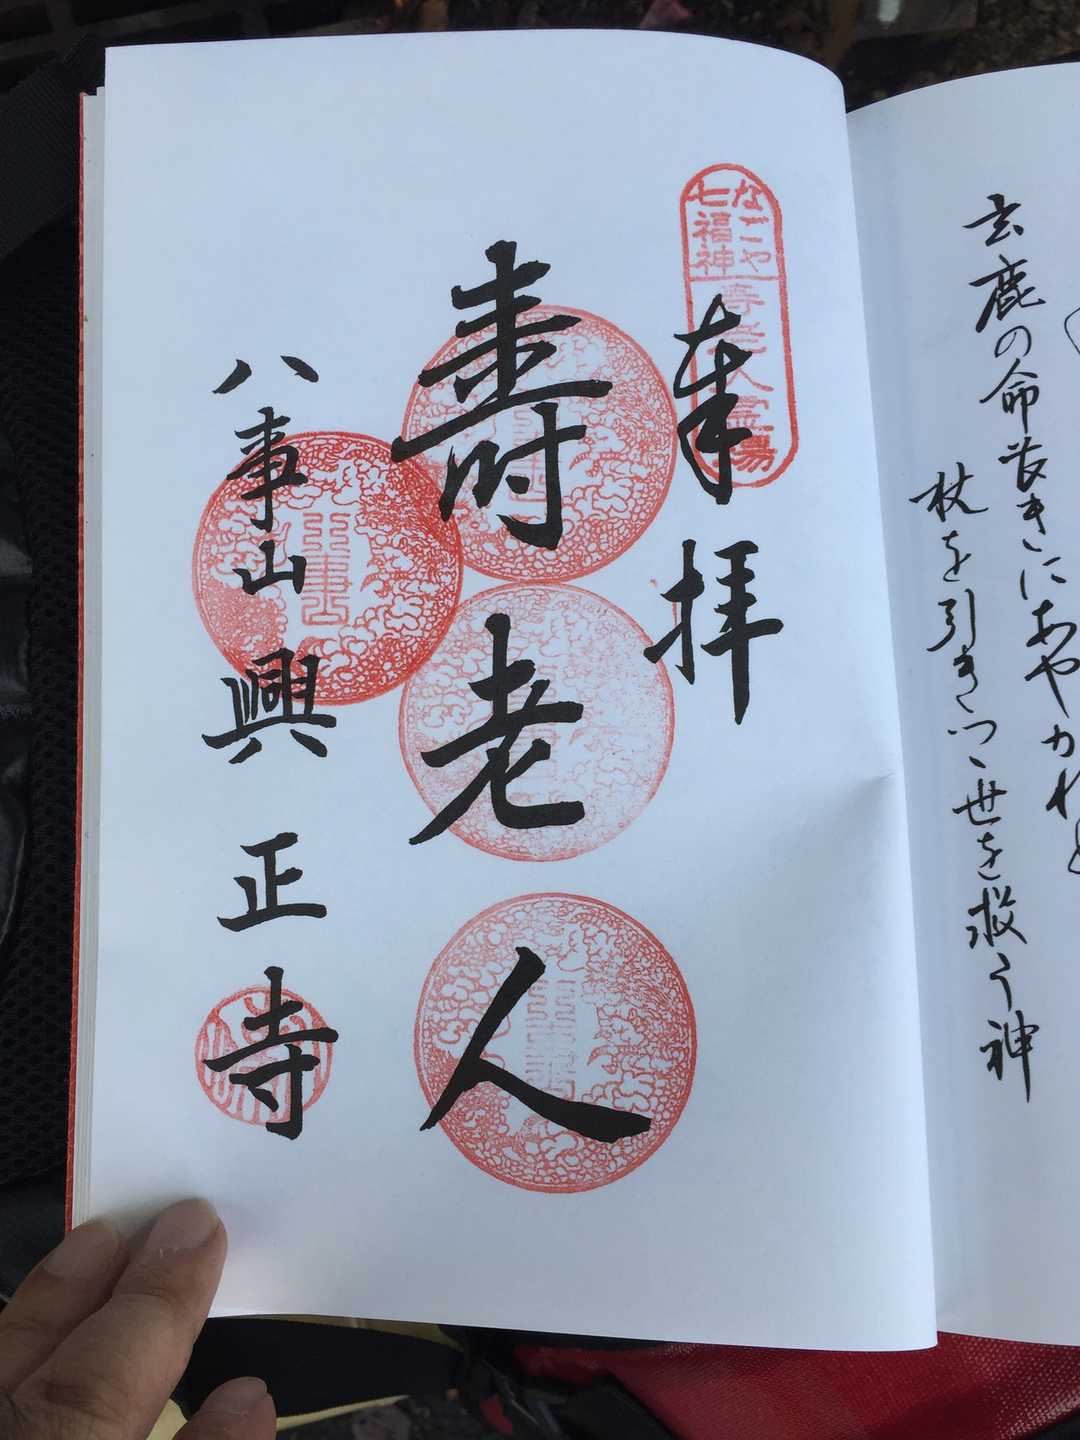 玄鹿の命長きにあやかれと
杖を引きつつ世を救う神
なごや
七福神
寿老人霊場
奉拝
寿老人
八事山興正寺